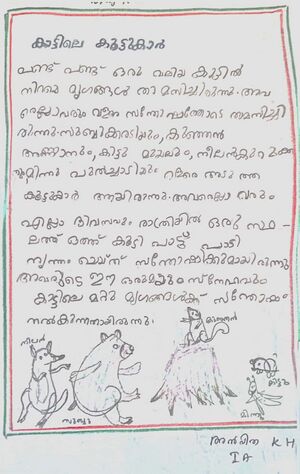 കാട്ടിലെ കൂട്ടുകാർ
പണ്ട് പണ്ട് ഒരു വലിയ കാട്ടിൽ
നിറയെ മൃഗങ്ങൾ താമസിച്ചിരുന്നു. അവ
രെല്ലാവരും വളരെ സന്തോഷത്തോടെ താമസിച്ചി
രുന്നു. സുബ്ബുകരടിയും, കുഞ്ഞൻ
അണ്ണാനും, കിട്ടു മുയലും, നീലൻകുറുക്കനും
മിന്നു പുൽച്ചാടിയും വളരെ അടുത്ത
കൂട്ടുകാർ ആയിരുന്നു. അവരെല്ലാവരും
എല്ലാ ദിവസവും രാത്രിയിൽ ഒരു സ്ഥ-
ലത്ത് ഒത്ത് കൂടി പാട്ട് പാടി
നൃത്തം ചെയ്ത് സന്തോഷിക്കുമായിരുന്നു
അവരുടെ ഈ ഒരുമയും സ്നേഹവും
കാട്ടിലെ മറ്റു മൃഗങ്ങൾക്ക് സന്തോഷം
നൽകുന്നതായിരുന്നു.
നീലൻ
കുഞ്ഞൻ
കിട്ടു
സുബ്ബു
മിന്നു
അൻമിത K H
I A